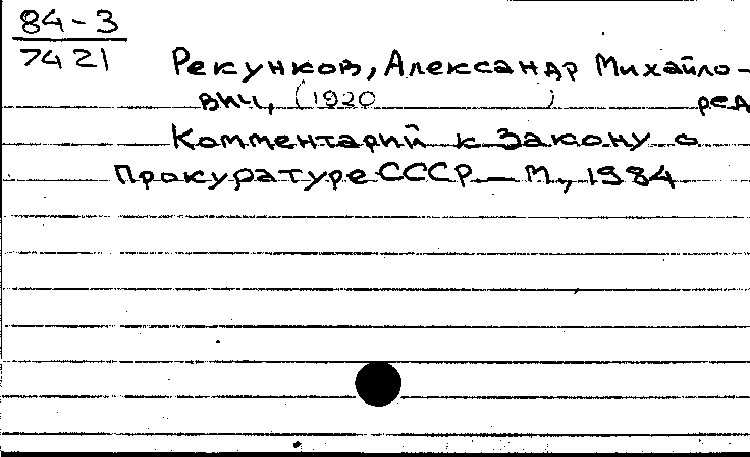 84-3
7421
Рекунков, Александр Михайло-
вич, (1920 ) ред
Комментарий к Закону о
Прокуратуре СССР. – М., 1984